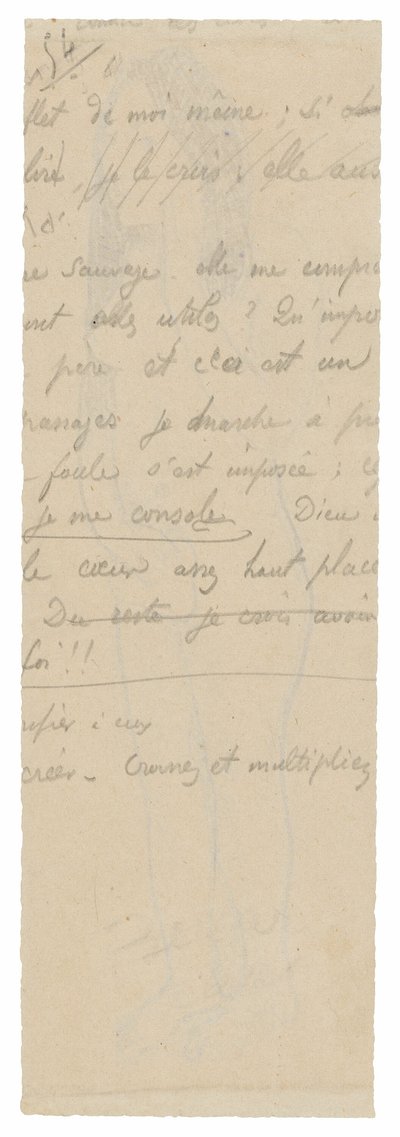 54
flet de moi même ; si
lire, je le crois ; elle aus
d'
re sauvage. elle me compre
ont assez utiles ? Qu'impor
père et ceci est un
rassages je marche à
foule s'est imposée ;
je me console Dieu
le cœur assez haut place
Du reste je crois avoir
loi !!
créer_ Croinez et multipliez